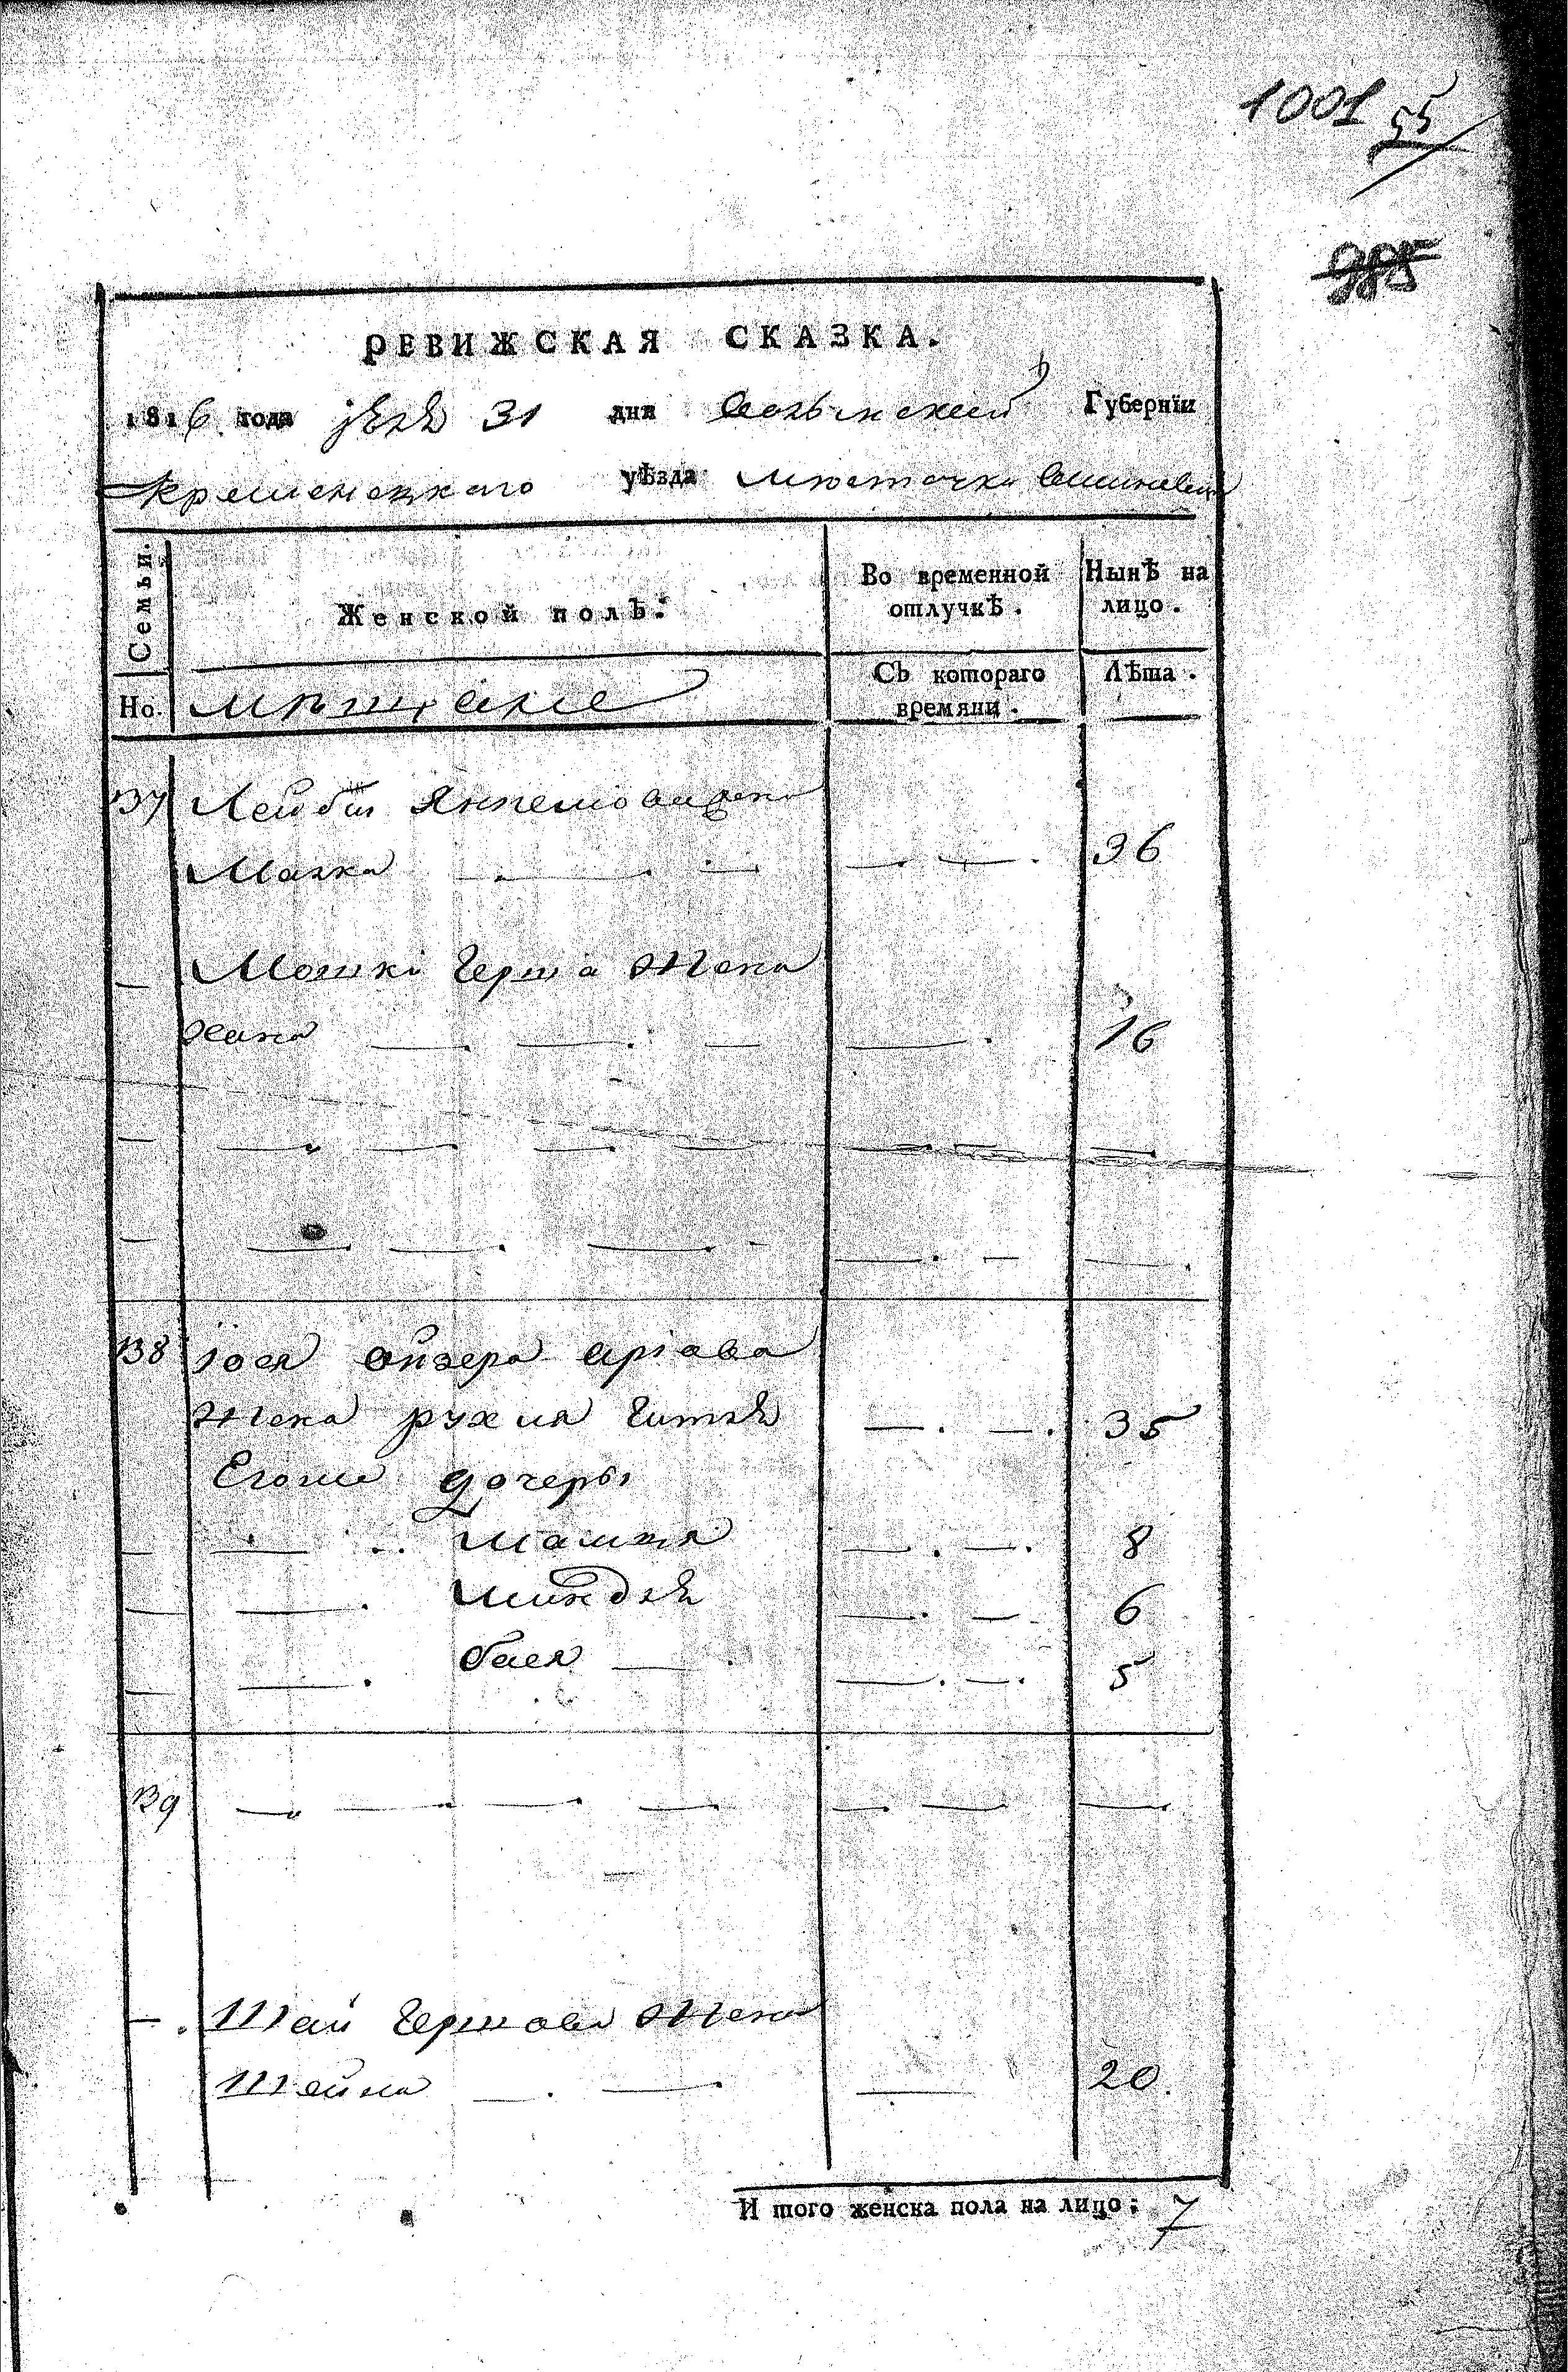 1001 55
985
РЕВИЖСКАЯ СКАЗКА.
1816 года 31 дня Волынской Губернїи
Кременецкаго уѣзда мѣстечка Вишневца
Семьи.
Женской полъ:
Во временной отлучкѣ.
Нынѣ на лицо.
Но.
мѣщане
Съ котораго времяни.
Лѣта.
137 Лейбы Янкелiовича жена
Малка — . — . — 36
— Мошки Герша жена
Хана — . — . — 16
— — . — . —
— — . — . —
138 Iося Айзера
жена рухля Гитля — . — . 35
Егоже дочеры
— — . . — . — . 8
— — . миндля — . — 6
— — . бася — . — . — . 5
139 — . — . — . —
— . Шаи Гершова жена
Шейна — . — . — 20.
И того женска пола на лицо: 7